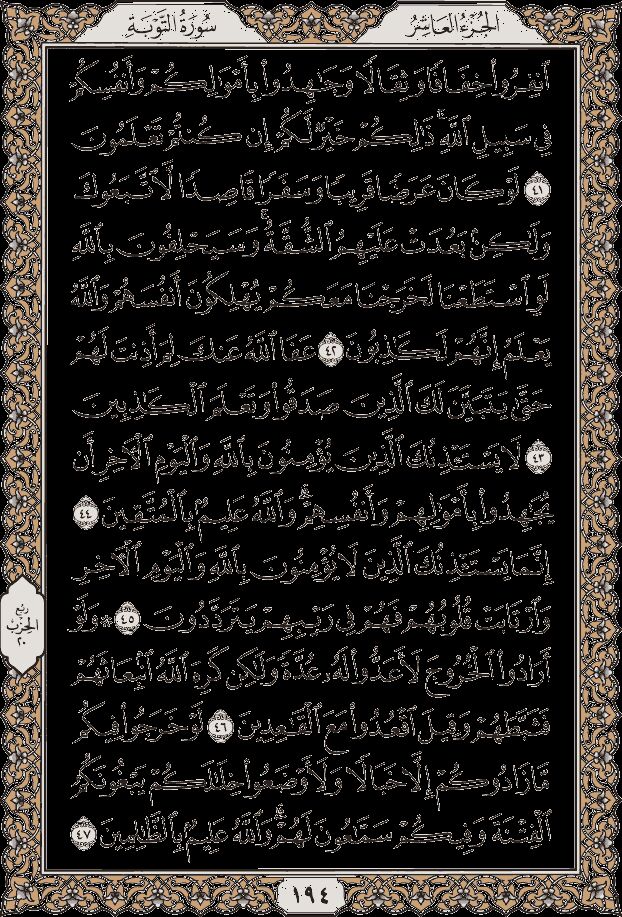 الجُزْءُ العَاشِرُ
سُورَةُ التَّوْبَةِ
ٱنفِرُوا۟ خِفَافًا وَثِقَالًا وَجَٰهِدُوا۟ بِأَمْوَٰلِكُمْ وَأَنفُسِكُمْ
فِى سَبِيلِ ٱللَّهِ ۚ ذَٰلِكُمْ خَيْرٌ لَّكُمْ إِن كُنتُمْ تَعْلَمُونَ
٤١ لَوْ كَانَ عَرَضًا قَرِيبًا وَسَفَرًا قَاصِدًا لَّٱتَّبَعُوكَ
وَلَٰكِنۢ بَعُدَتْ عَلَيْهِمُ ٱلشُّقَّةُ ۚ وَسَيَحْلِفُونَ بِٱللَّهِ
لَوِ ٱسْتَطَعْنَا لَخَرَجْنَا مَعَكُمْ يُهْلِكُونَ أَنفُسَهُمْ وَٱللَّهُ
يَعْلَمُ إِنَّهُمْ لَكَٰذِبُونَ ٤٢ عَفَا ٱللَّهُ عَنكَ لِمَ أَذِنتَ لَهُمْ
حَتَّىٰ يَتَبَيَّنَ لَكَ ٱلَّذِينَ صَدَقُوا۟ وَتَعْلَمَ ٱلْكَٰذِبِينَ
٤٣ لَا يَسْتَـْٔذِنُكَ ٱلَّذِينَ يُؤْمِنُونَ بِٱللَّهِ وَٱلْيَوْمِ ٱلْءَاخِرِ أَن
يُجَٰهِدُوا۟ بِأَمْوَٰلِهِمْ وَأَنفُسِهِمْ ۗ وَٱللَّهُ عَلِيمٌۢ بِٱلْمُتَّقِينَ ٤٤
إِنَّمَا يَسْتَـْٔذِنُكَ ٱلَّذِينَ لَا يُؤْمِنُونَ بِٱللَّهِ وَٱلْيَوْمِ ٱلْءَاخِرِ
وَٱرْتَابَتْ قُلُوبُهُمْ فَهُمْ فِى رَيْبِهِمْ يَتَرَدَّدُونَ ٤٥ ۞ وَلَوْ
أَرَادُوا۟ ٱلْخُرُوجَ لَأَعَدُّوا۟ لَهُۥ عُدَّةً وَلَٰكِن كَرِهَ ٱللَّهُ ٱنۢبِعَاثَهُمْ
فَثَبَّطَهُمْ وَقِيلَ ٱقْعُدُوا۟ مَعَ ٱلْقَٰعِدِينَ ٤٦ لَوْ خَرَجُوا۟ فِيكُم
مَّا زَادُوكُمْ إِلَّا خَبَالًا وَلَأَوْضَعُوا۟ خِلَٰلَكُمْ يَبْغُونَكُمُ
ٱلْفِتْنَةَ وَفِيكُمْ سَمَّٰعُونَ لَهُمْ ۗ وَٱللَّهُ عَلِيمٌۢ بِٱلظَّٰلِمِينَ ٤٧
ربع
الحزب
٢٠
١٩٤